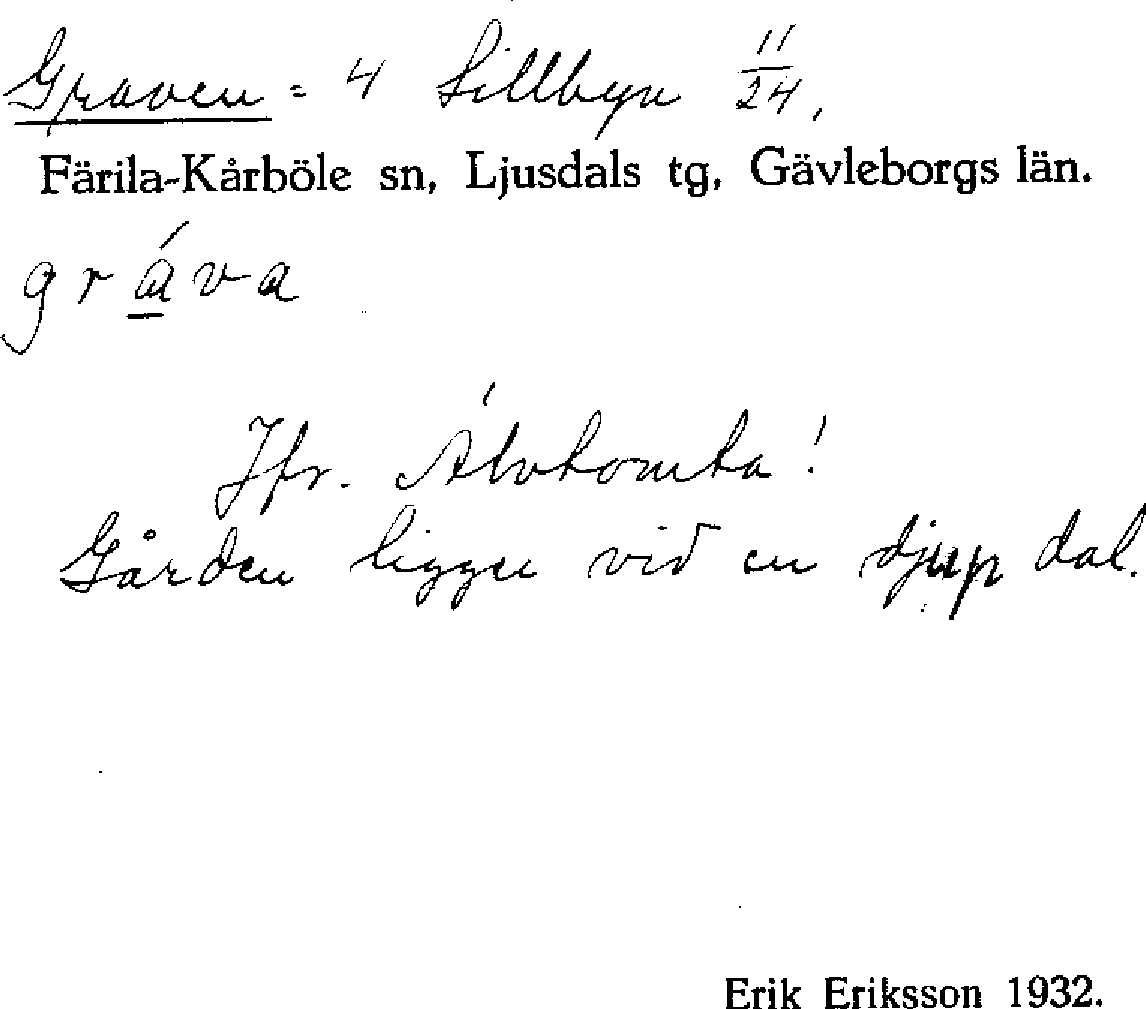 Graven = 4 Lillbyn 11/24,
Färila-Kårböle sn, Ljusdals tg, Gävleborgs län.
gráva
Jfr. Álvtomta!
Gården ligger vid en djup dal.
Erik Eriksson 1932.